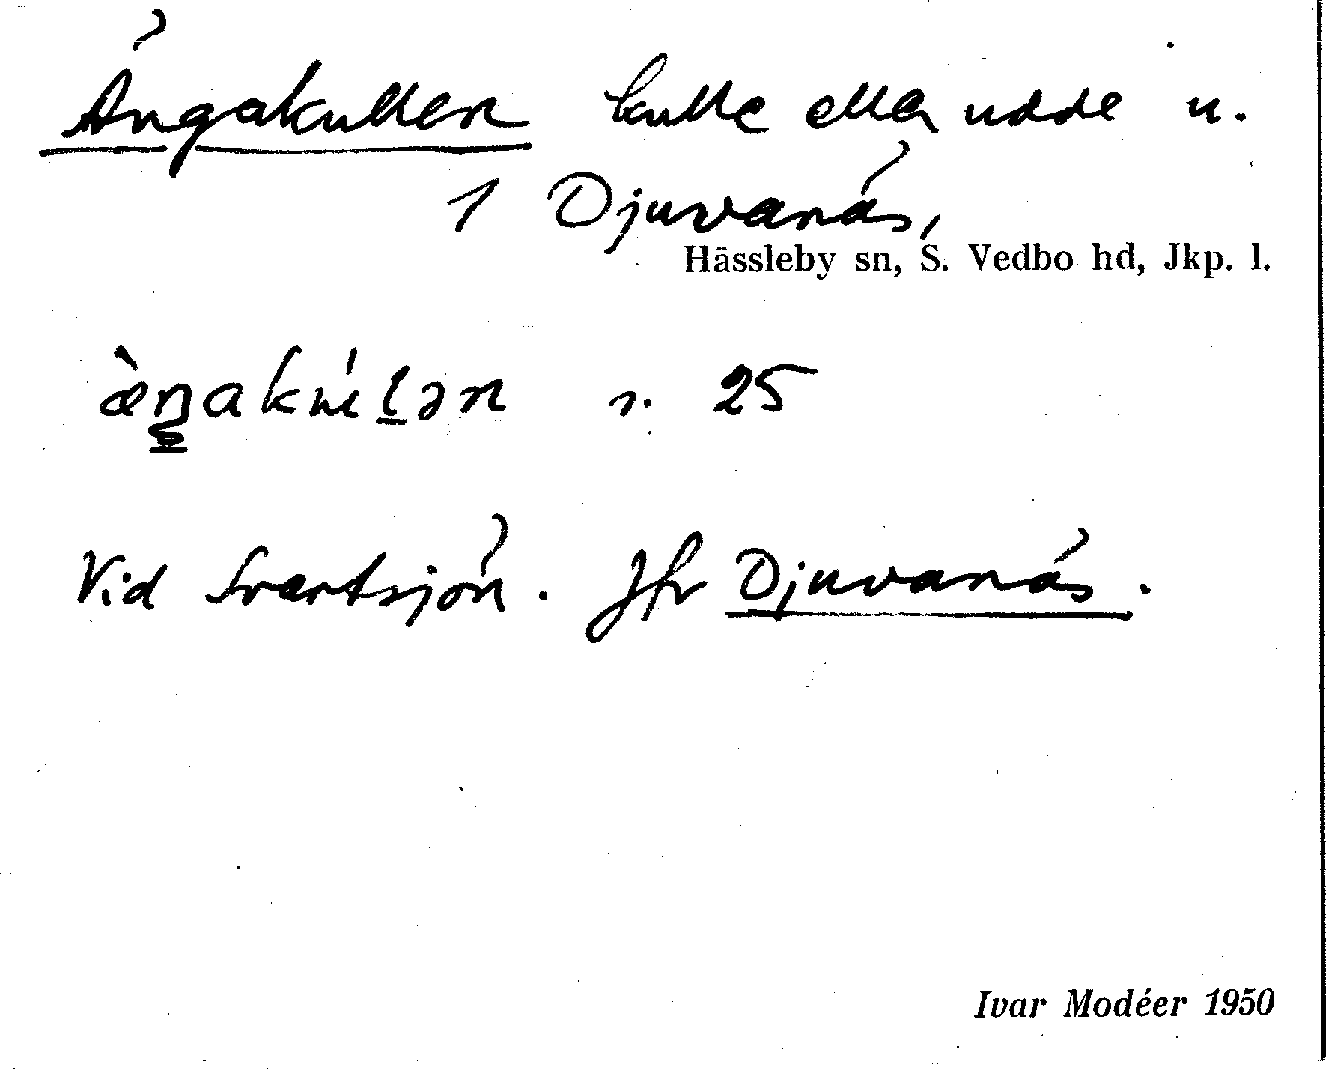 Ängakullen kulle eller udde u.
1 Djuvanäs,
Hässleby sn, S. Vedbo hd, Jkp. l.
r. 25
Vid Svartsjön. Jfr Djuvanäs.
Ivar Modéer 1950